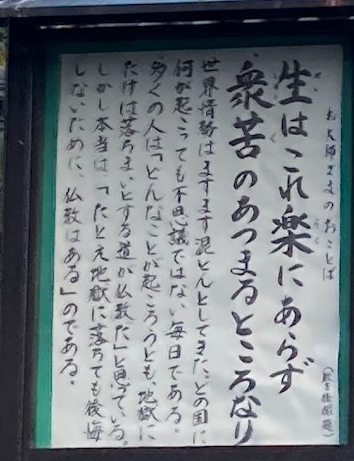 お大師さまのおことば
生はこれ楽にあらず
衆苦のあつまるところなり
世界情勢はますます混とんとしてきた。どの国に
何が起こっても不思議ではない毎日である。
多くの人は「どんなことが起ころうとも、地獄に
だけは落ちまいとする道が仏教だ」と思っている。
しかし本当は、「たとえ地獄に落ちても後悔
しないために、仏教はある」のである。